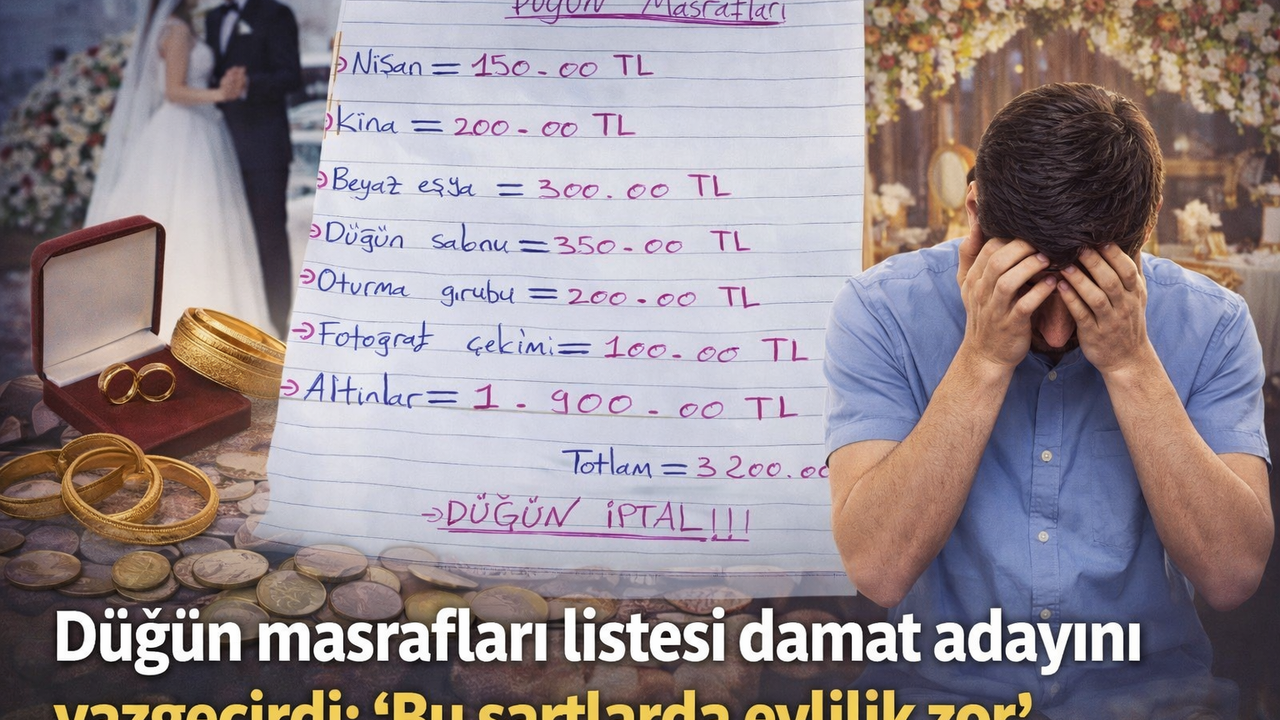 Düğün Masrafları
→Nişan = 150.00 TL
→Kına = 200.00 TL
→Beyaz eşya = 300.00 TL
→Düğün salonu = 350.00 TL
→Oturma gırubu = 200.00 TL
→Fotoğraf çekimi = 100.00 TL
→Altinlar = 1.900.00 TL
Totlam = 3 200.00
→DÜĞÜN İPTAL!!!
Düğün masrafları listesi damat adayını
vazgeçirdi: ‘Bu şartlarda evlilik zor’